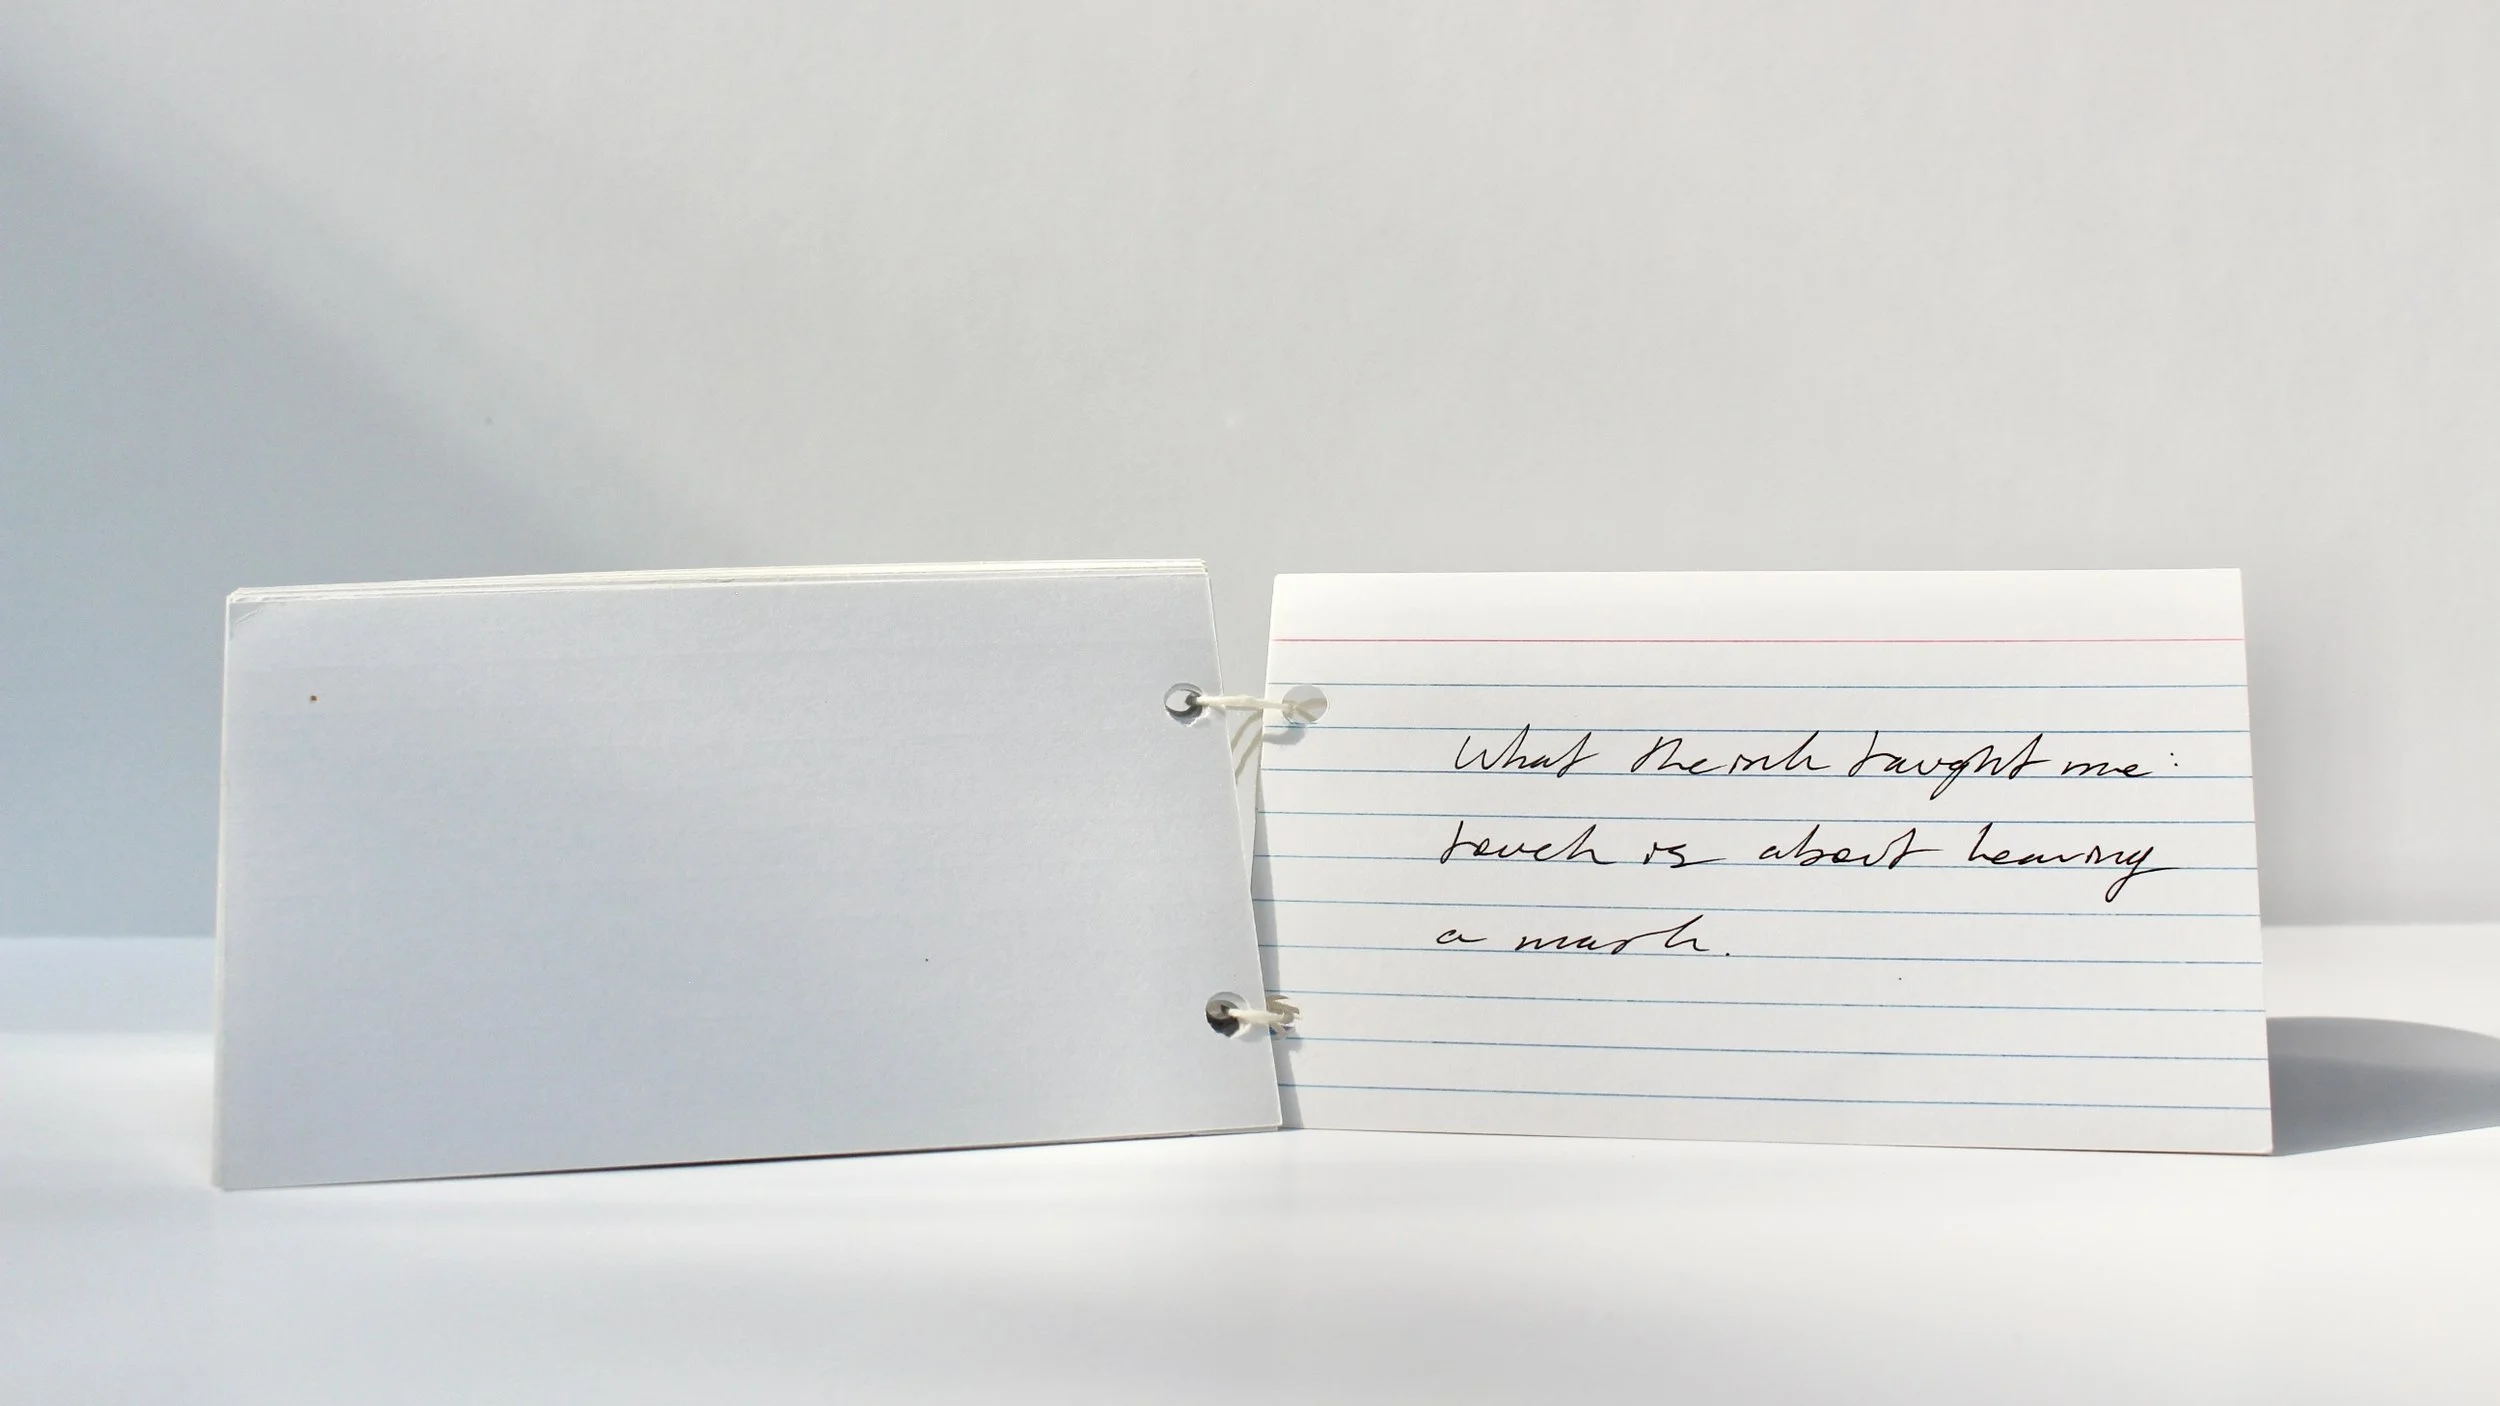 What the ink taught me:
touch is about leaving
a mark.